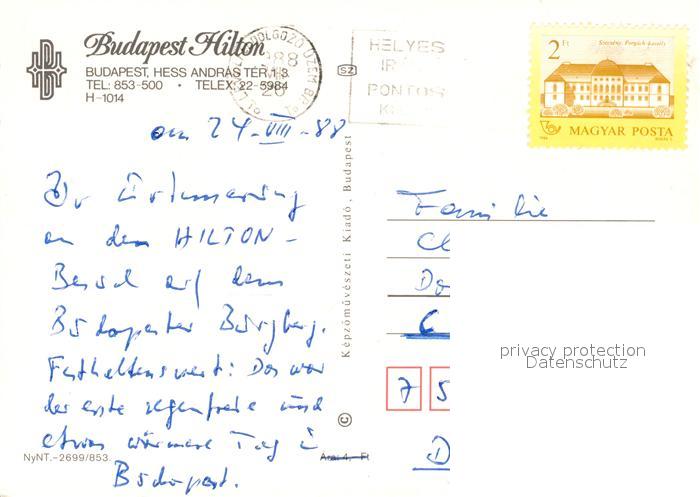 Budapest Hilton
BUDAPEST, HESS ANDRÁS TÉR 1-3.
TEL: 853-500 • TELEX: 22-5984
H-1014
HELYES
PONTOS
SZ
2 Ft
Szécsény, Forgách-kastély
MAGYAR POSTA
am 24-VIII-88
Zur Erinnerung
an dem HILTON-
Besuch auf dem
Budapester Burgberg.
Festhaltenswert: Das war
der erste regenfreie und
etwas wärmere Tag in
Budapest.
Képzőművészeti Kiadó, Budapest
©
NyNT.-2699/853.
Ára: 4,- Ft
Familie
Do
7 5
D
privacy protection
Datenschutz